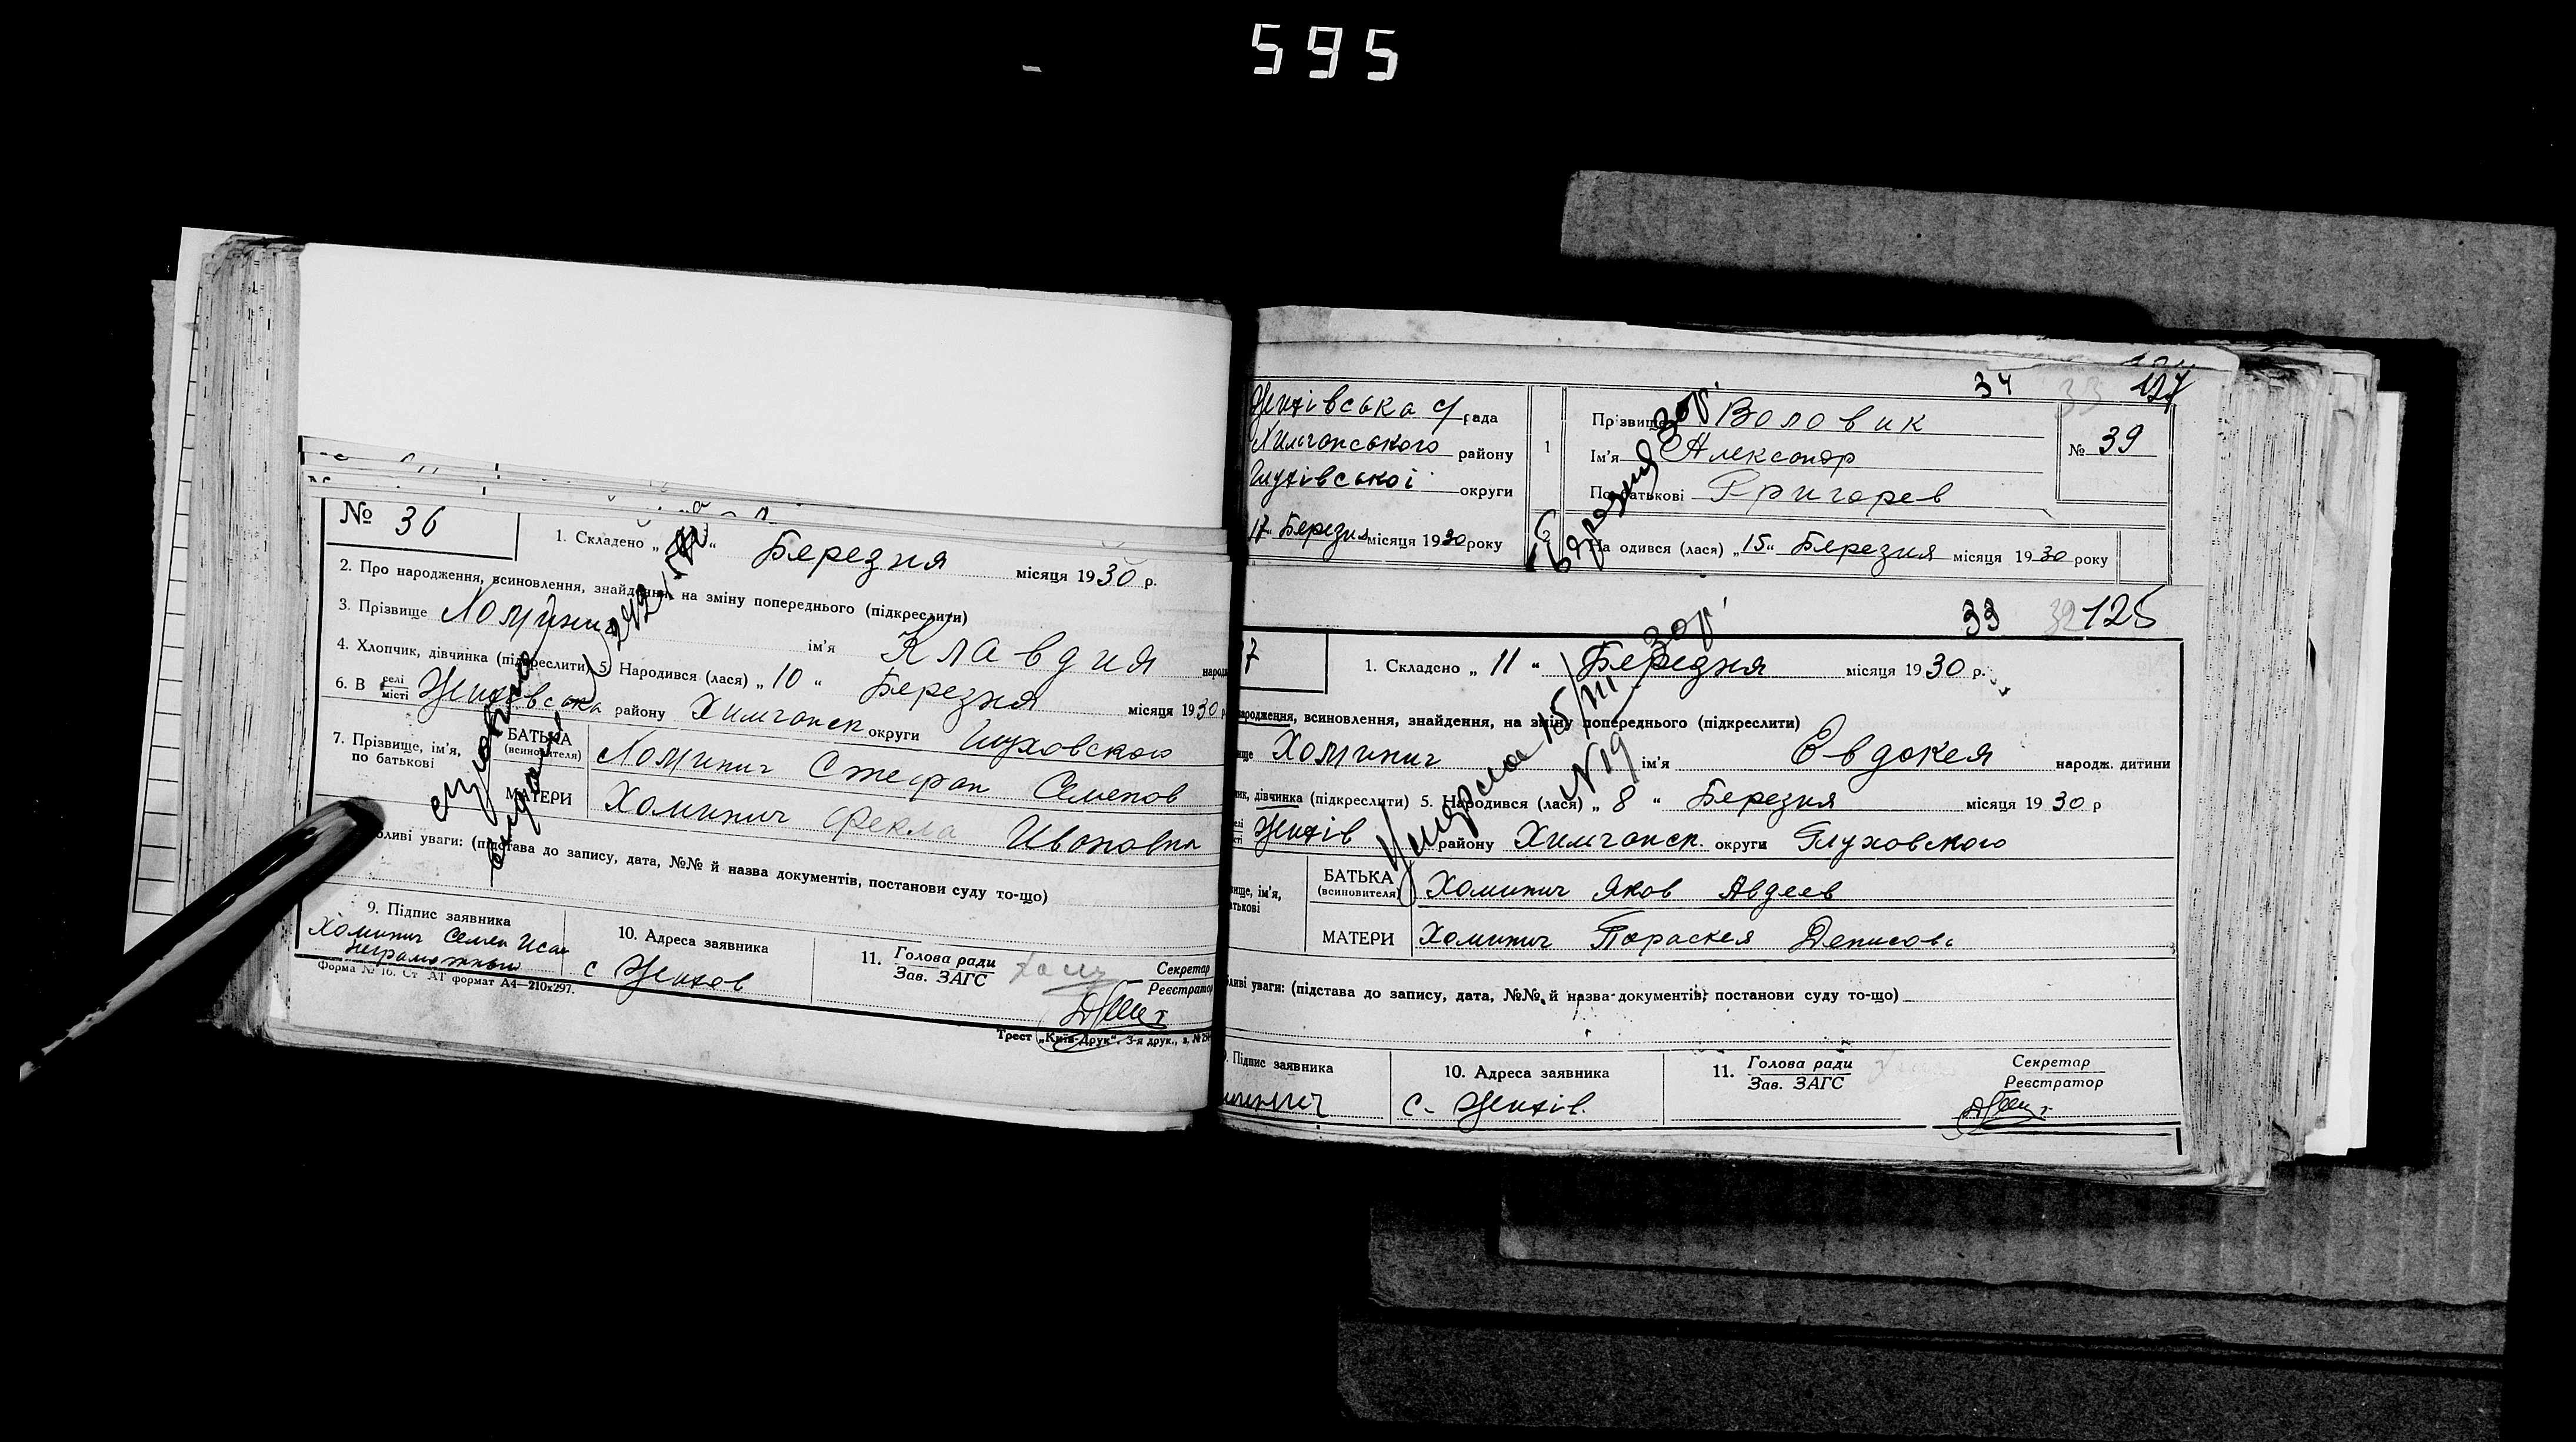 595
№ 36
1. Складено „ “ Березня місяця 1930 р.
2. Про народження, всиновлення, знайдення, на зміну попереднього (підкреслити)
3. Прізвище Хоминич ім'я Клавдия народ
4. Хлопчик, дівчинка (підкреслити) 5. Народився (лася) „ 10 “ Березня місяця 1930 р
6. В селі місті району Химчанск округи Глуховского
7. Прізвище, ім'я, по батькові
БАТЬКА (всиновителя) Хоминич Стефан Семенов
МАТЕРИ Хоминич Фекла Ивановна
бливі уваги: (підстава до запису, дата, №№ й назва документів, постанови суду то-що)
9. Підпис заявника
Хоминич Семен Исак
неграмотный
10. Адреса заявника
с
11. Голова ради
Зав. ЗАГС
Секретар
Реєстратор
Форма № 16. Ст АТ формат А4—210х297.
Трест „Київ-Друк“. 3-я друк., з. №
34 33 127
с/рада
району
Глухівської округи
17“ Березня місяця 1930 року
1
Прізвище Воловик
Ім'я Александр
По батькові Григорев
№ 39
На одився (лася) „15“ Березня місяця 1930 року
33 32 125
7
1. Складено „ 11 “ Березня місяця 1930 р.
народження, всиновлення, знайдення, на зміну попереднього (підкреслити)
ище Хоминич ім'я Евдокея народж. дитини
ик, дівчинка (підкреслити) 5. Народився (лася) „ 8 “ Березня місяця 1930 р
району Химчанск. округи Глуховского
вище, ім'я,
атькові
БАТЬКА (всиновителя) Хоминич Яков Авдеев
МАТЕРИ Хоминич Параскея Денисова
Умерла 15/III 30р.
№ 19
ливі уваги: (підстава до запису, дата, №№ й назва документів, постанови суду то-що)
9. Підпис заявника
минич
10. Адреса заявника
с.
11. Голова ради
Зав. ЗАГС
Секретар
Реєстратор